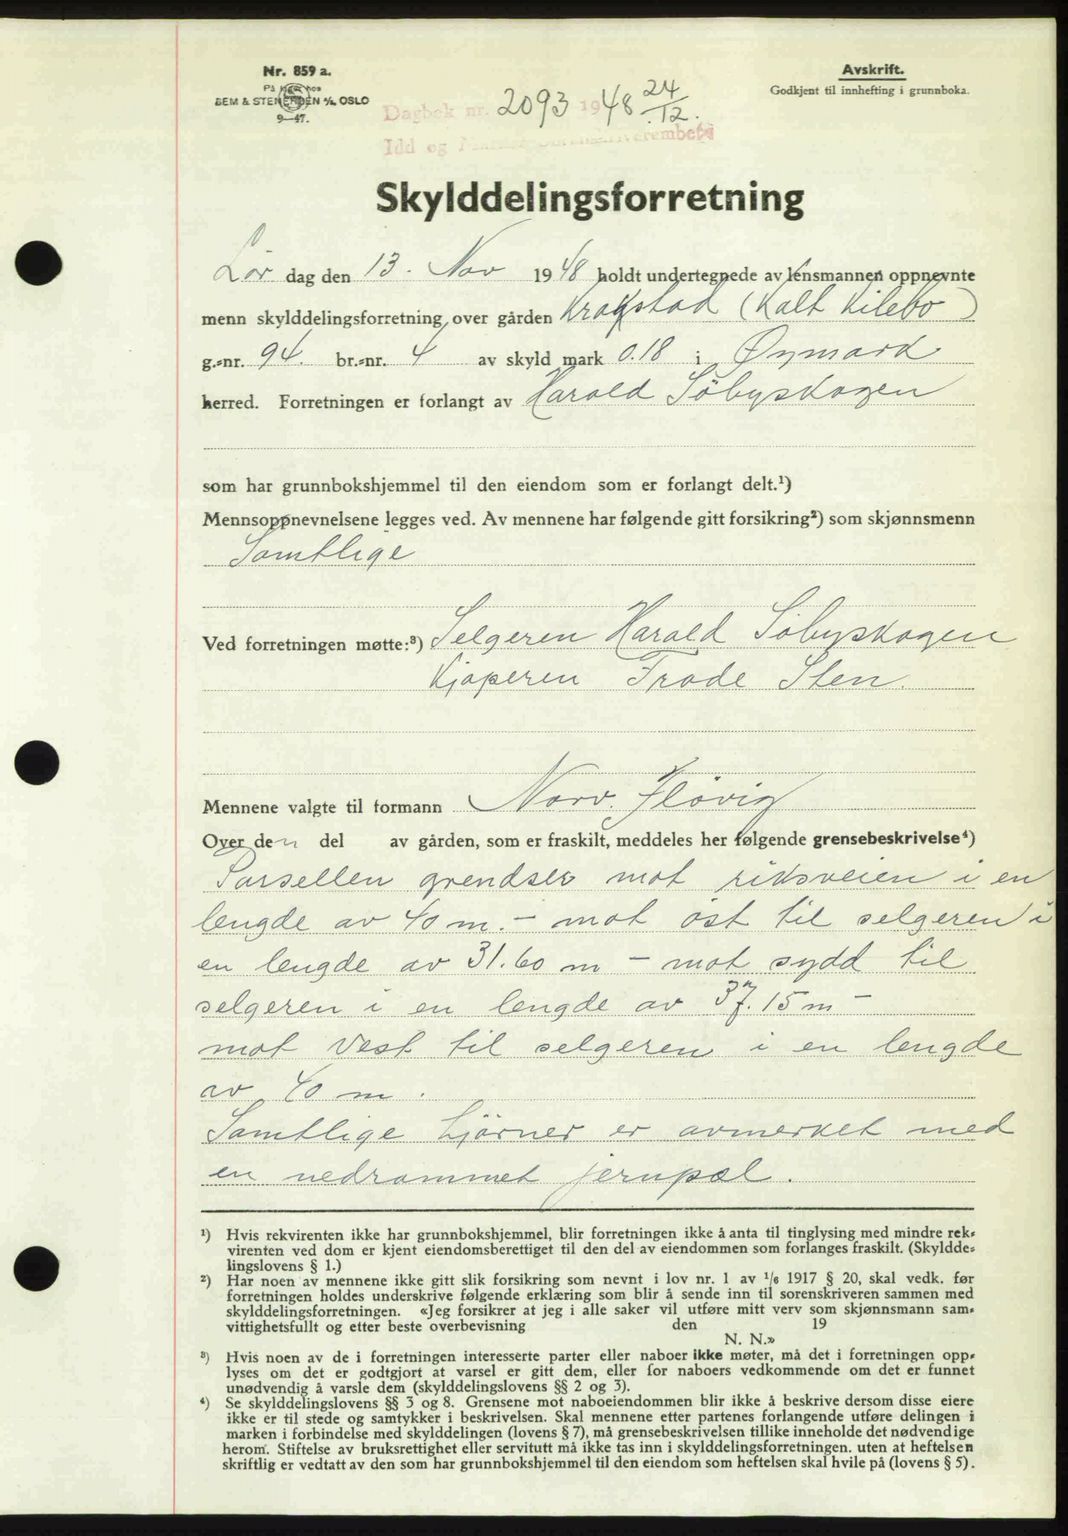 Nr. 859 a.
På lager hos
SEM & STENERSEN A/S, OSLO
9—47.
Avskrift.
Godkjent til innhefting i grunnboka.
Dagbok nr. 2093 1948 24/12.
Idd og Marker Sorenskriverembete
Skylddelingsforretning
Lør dag den 13. Nov 1948 holdt undertegnede av lensmannen oppnevnte
menn skylddelingsforretning over gården Krakstad (Kalt Kilebo)
g.=nr. 94. br.=nr. 4 av skyld mark 0.18 i Øymark
herred. Forretningen er forlangt av Harald Söbyskogen
som har grunnbokshjemmel til den eiendom som er forlangt delt.¹)
Mennsoppnevnelsene legges ved. Av mennene har følgende gitt forsikring²) som skjønnsmenn
Samtlige
Ved forretningen møtte:³) Selgeren Harald Söbyskogen
Kjøperen Frode Sten.
Mennene valgte til formann Norv. Flövig
Over den del av gården, som er fraskilt, meddeles her følgende grensebeskrivelse⁴)
Parsellen grendser mot riksveien i en
lengde av 40 m. – mot öst til selgeren i
en lengde av 31.60 m – mot sydd til
selgeren i en lengde av 37.15 m –
mot Vest til selgeren i en lengde
av 40 m.
Samtlige hjörner er avmerket med
en nedrammet jernpæl.
¹) Hvis rekvirenten ikke har grunnbokshjemmel, blir forretningen ikke å anta til tinglysing med mindre rek=
virenten ved dom er kjent eiendomsberettiget til den del av eiendommen som forlanges fraskilt. (Skyldde=
lingslovens § 1.)
²) Har noen av mennene ikke gitt slik forsikring som nevnt i lov nr. 1 av 1/6 1917 § 20, skal vedk. før
forretningen holdes underskrive følgende erklæring som blir å sende inn til sorenskriveren sammen med
skylddelingsforretningen. «Jeg forsikrer at jeg i alle saker vil utføre mitt verv som skjønnsmann sam=
vittighetsfullt og etter beste overbevisning den 19
N. N.»
³) Hvis noen av de i forretningen interesserte parter eller naboer ikke møter, må det i forretningen opp=
lyses om det er godtgjort at varsel er gitt dem, eller for naboers vedkommende om det er funnet
unødvendig å varsle dem (skylddelingslovens §§ 2 og 3).
⁴) Se skylddelingslovens §§ 3 og 8. Grensene mot naboeiendommen blir ikke å beskrive dersom disse eiere
ikke er til stede og samtykker i beskrivelsen. Skal mennene etter partenes forlangende utføre delingen i
marken i forbindelse med skylddelingen (lovens § 7), må grensebeskrivelsen tillike inneholde det nødvendige
herom. Stiftelse av bruksrettighet eller servitutt må ikke tas inn i skylddelingsforretningen. uten at heftelsen
skriftlig er vedtatt av den som har grunnbokshjemmel til den eiendom som heftelsen skal hvile på (lovens § 5).